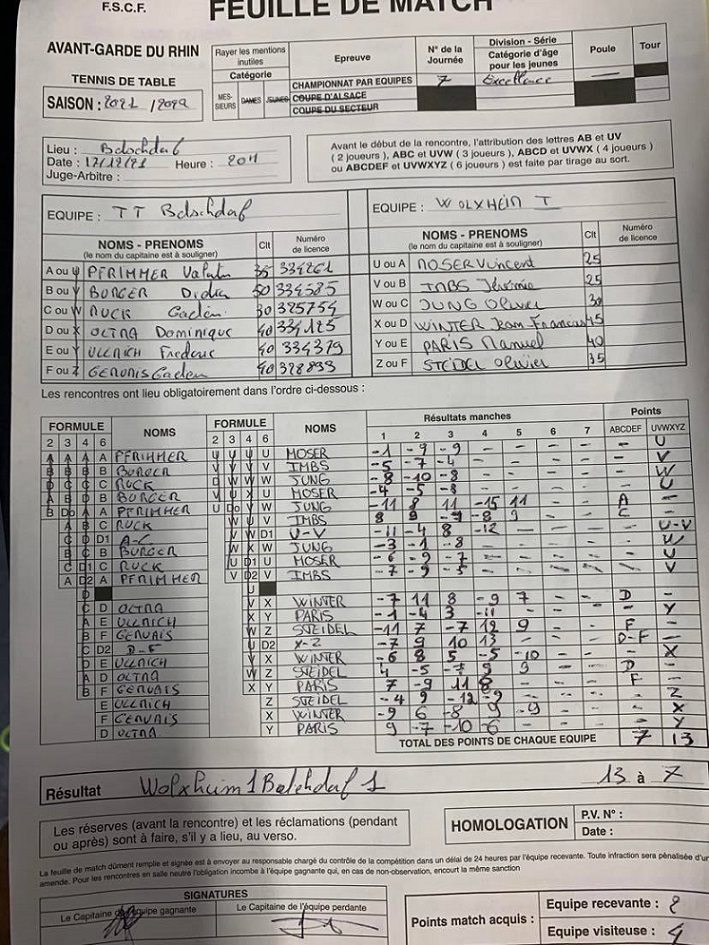 F.S.C.F. FEUILLE DE MATCH
AVANT-GARDE DU RHIN
TENNIS DE TABLE
SAISON : 2021 /2022
Rayer les mentions inutiles
Catégorie
MES-SIEURS DAMES JEUNES
Epreuve
CHAMPIONNAT PAR EQUIPES
COUPE D'ALSACE
COUPE DU SECTEUR
N° de la Journée
7
Division - Série
Catégorie d'âge pour les jeunes
Excellence
Poule
Tour
Lieu :
Date : 17/12/21 Heure : 20H
Juge-Arbitre :
Avant le début de la rencontre, l'attribution des lettres AB et UV
( 2 joueurs ), ABC et UVW ( 3 joueurs ), ABCD et UVWX ( 4 joueurs )
ou ABCDEF et UVWXYZ ( 6 joueurs ) est faite par tirage au sort.
EQUIPE : TT
EQUIPE : WOLXHEIM I
NOMS - PRENOMS
(le nom du capitaine est à souligner)
Clt
Numéro de licence
NOMS - PRENOMS
(le nom du capitaine est à souligner)
Clt
Numéro de licence
A ou U PFRIMMER 35 334261
B ou V BURGER 50 334585
C ou W RUCK 30 325754
D ou X OLTRA Dominique 40 334125
E ou Y ULLRICH Frédéric 40 334379
F ou Z GERVAIS 40 328833
U ou A MOSER Vincent 25
V ou B IMBS Jérémie 25
W ou C JUNG Olivier 30
X ou D WINTER Jean Francois 45
Y ou E PARIS Manuel 40
Z ou F STEIDEL Olivier 35
Les rencontres ont lieu obligatoirement dans l'ordre ci-dessous :
FORMULE NOMS FORMULE NOMS Résultats manches Points
2 3 4 6 2 3 4 6 1 2 3 4 5 6 7 ABCDEF UVWXYZ
A PFRIMMER U MOSER -1 -9 -9 - - - - - U
B BURGER V IMBS -5 -7 -4 - - - - - V
C RUCK W JUNG -8 -10 -8 - - - - - W
B BURGER U MOSER -4 -5 -8 - - - - - U
A PFRIMMER W JUNG -11 8 11 -15 11 - - A -
C RUCK V IMBS 8 9 -9 -8 9 - - C -
D1 A-C D1 U-V -11 -4 8 -12 - - - - U-V
B BURGER W JUNG -3 -1 -8 - - - - - W
C RUCK U MOSER -6 -9 -7 - - - - - U
A PFRIMMER V IMBS -7 -9 -5 - - - - - V
D OLTRA X WINTER -7 11 8 -9 7 - - D -
E ULLRICH Y PARIS -1 -4 3 -11 - - - - Y
F GERVAIS Z STEIDEL -11 7 -7 12 9 - - F -
D2 D-F D2 Y-Z -7 9 10 13 - - - D-F -
E ULLRICH X WINTER -6 8 5 -5 -10 - - - X
D OLTRA Z STEIDEL 4 -5 -7 9 9 - - D -
F GERVAIS Y PARIS 7 -9 11 8 - - - F -
E ULLRICH Z STEIDEL -4 9 -12 -9 - - - - Z
F GERVAIS X WINTER -9 6 -8 9 -9 - - - X
D OLTRA Y PARIS 9 -7 -10 -6 - - - - Y
TOTAL DES POINTS DE CHAQUE EQUIPE 7 13
Résultat Wolxheim 1 1 13 à 7
Les réserves (avant la rencontre) et les réclamations (pendant
ou après) sont à faire, s'il y a lieu, au verso.
HOMOLOGATION
P.V. N° :
Date :
La feuille de match dûment remplie et signée est à envoyer au responsable chargé du contrôle de la compétition dans un délai de 24 heures par l'équipe recevante. Toute infraction sera pénalisée d'un
amende. Pour les rencontres en salle neutre l'obligation incombe à l'équipe gagnante qui, en cas de non-observation, encourt la même sanction
SIGNATURES
Le Capitaine de l'équipe gagnante Le Capitaine de l'équipe perdante
Points match acquis :
Equipe recevante :
Equipe visiteuse : 4